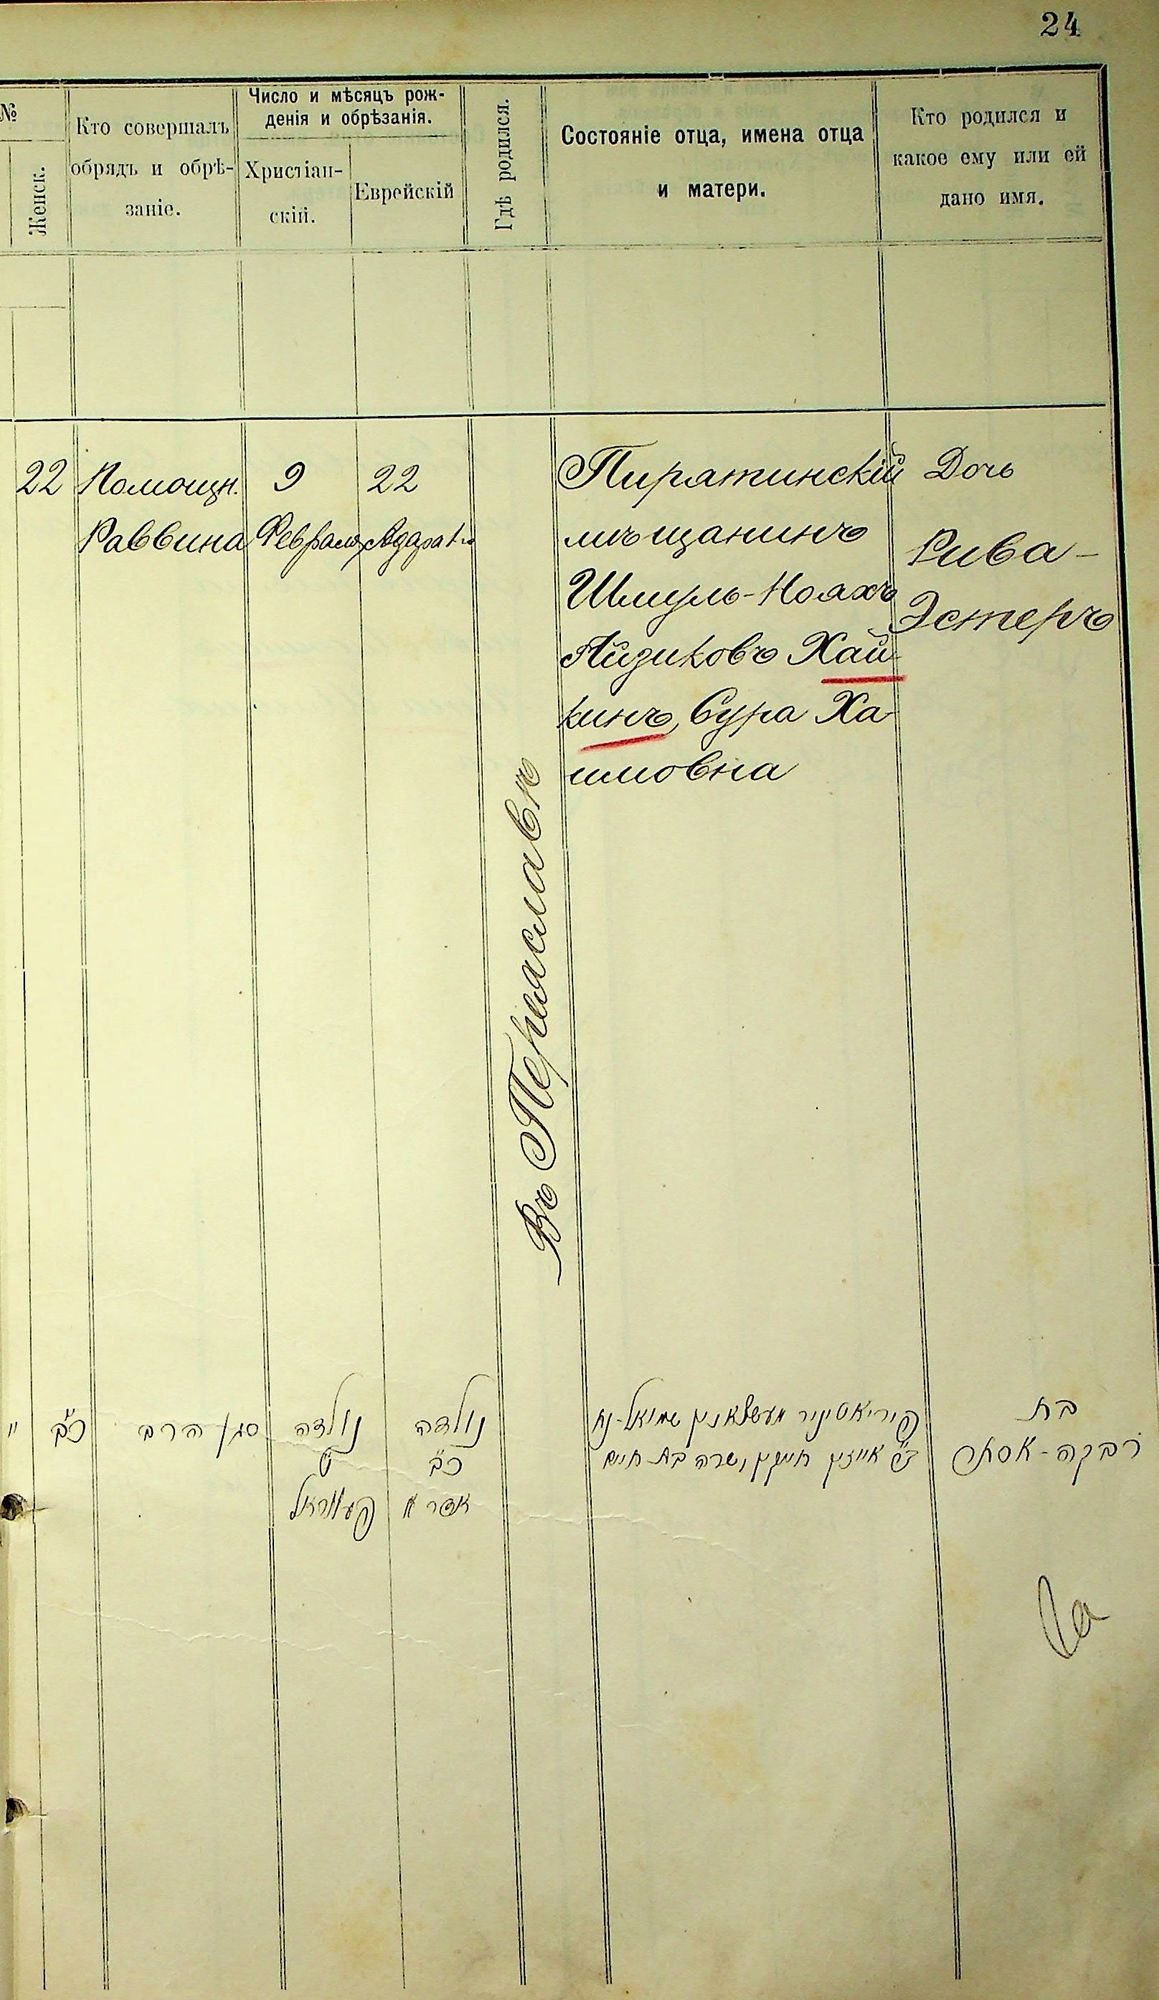 24
№
Женск.
Кто совершалъ
обрядъ и обрѣ-
заніе.
Число и мѣсяцъ рож-
денія и обрѣзанія.
Христіан-
скій.
Еврейскій
Гдѣ родился.
Состояніе отца, имена отца
и матери.
Кто родился и
какое ему или ей
дано имя.
22
Помощн.
Раввина
9
Февраля
22
Адара 1го
Въ Переяславѣ
Пирятинскій
мѣщанинъ
Шмуль-Нояхъ
Айзиковъ Хай-
кинъ, Сура Ха-
имовна
Дочь
Рива-
Эстеръ
כ"ב
סגן הרב
נולדה
ט'
פעווראל
נולדה
כ"ב
אדר א'
פיריאטינער מעשצאנין שמואל-נח
אייזיק חייקין ושרה בת חיים
בת
רבקה-אסתר